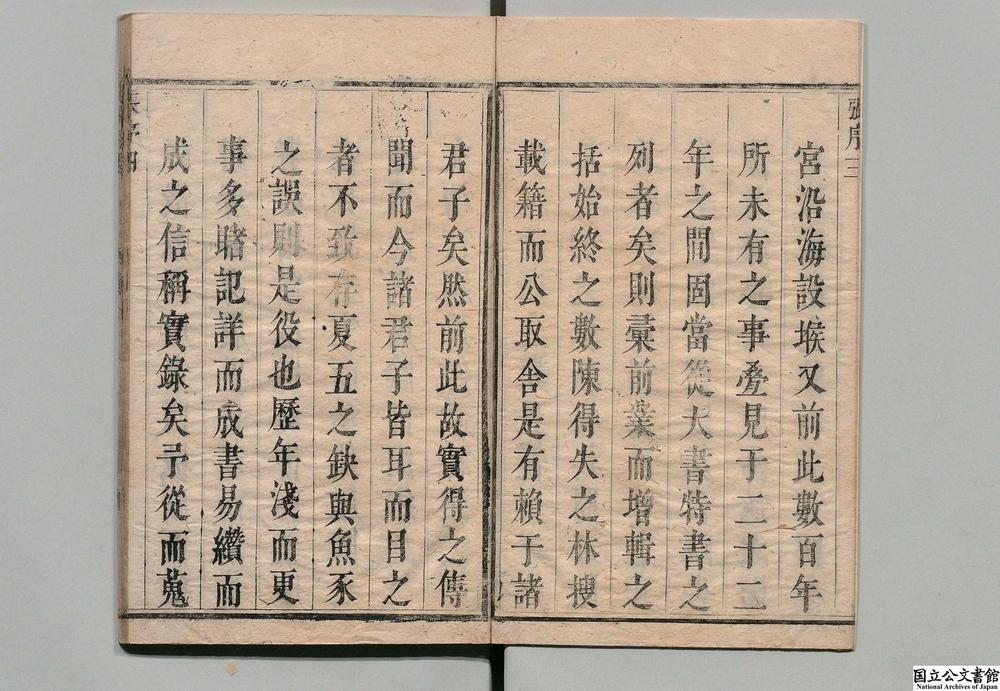 張序三
宮沿海設堠又前此數百年
所未有之事疊見于二十二
年之間固當從大書特書之
列者矣則彙前業而增輯之
括始終之數陳得失之林搜
載籍而公取舍是有賴于諸
君子矣然前此故實得之傳
聞而今諸君子皆耳而目之
者不致存夏五之缺與魚豕
之誤則是役也歷年淺而更
事多睹記詳而成書易纘而
成之信稱實錄矣予從而蒐
張序四
国立公文書館
National Archives of Japan